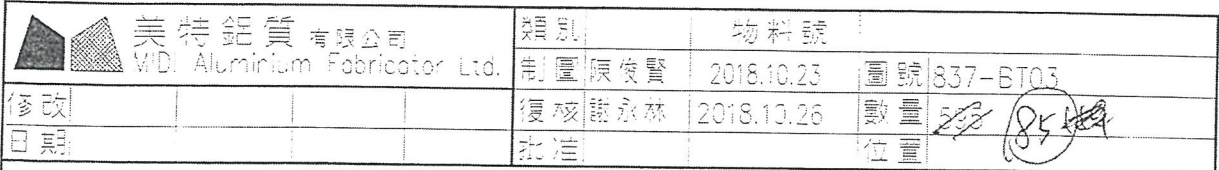 美特鋁質有限公司
MIDI Aluminium Fabricator Ltd.
類別 物料號
制圖 陳俊賢 2018.10.23 圖號 837-BT03
修改 復核 謝永林 2018.10.26 數量 85
日期 批准 位置